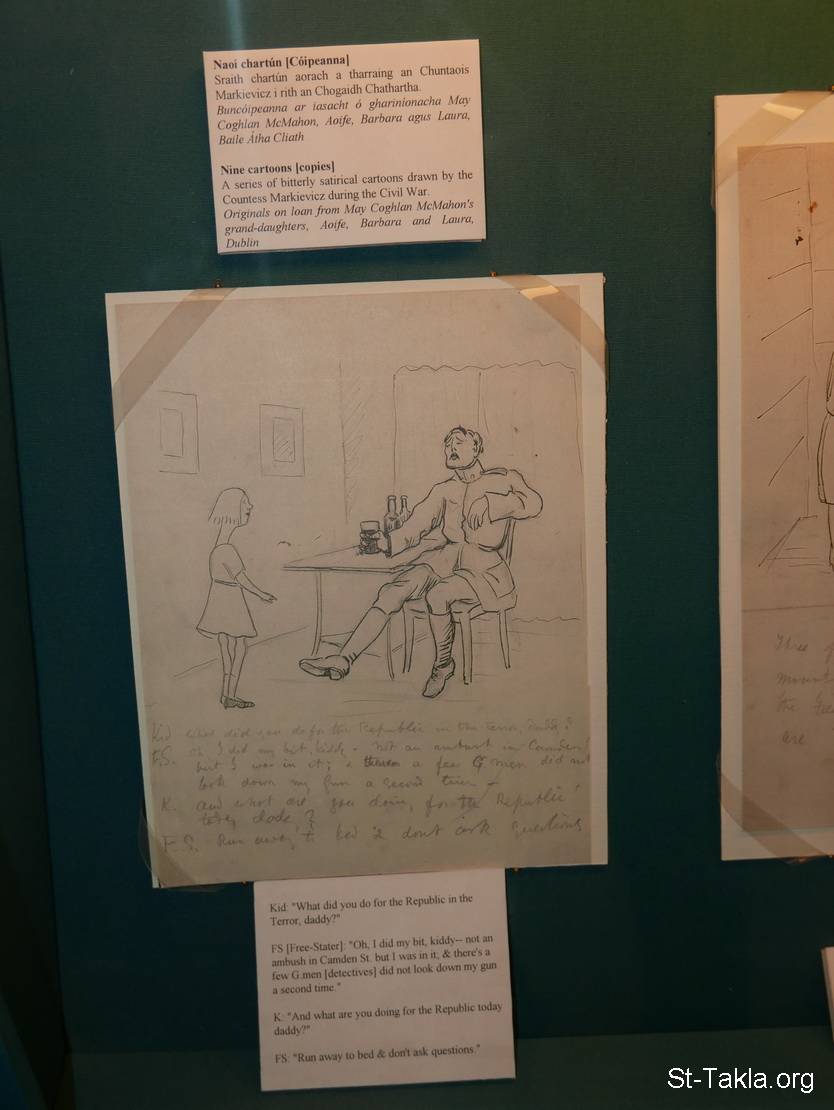 Naoi chartún [Cóipeanna]
Sraith chartún aorach a tharraing an Chuntaois
Markievicz i rith an Chogaidh Chathartha.
Buncóipeanna ar iasacht ó ghariníonacha May
Coghlan McMahon, Aoife, Barbara agus Laura,
Baile Átha Cliath
Nine cartoons [copies]
A series of bitterly satirical cartoons drawn by the
Countess Markievicz during the Civil War.
Originals on loan from May Coghlan McMahon's
grand-daughters, Aoife, Barbara and Laura,
Dublin
Kid what did you do for the Republic in the Terror, daddy?
F.S. Oh I did my bit, kiddy - not an ambush in Camden
but I was in it; & theres a few G. men did not
look down my gun a second time -
K. and what are you doing for the Republic
today dada?
F.S. Run away to bed & dont ask questions
Three
mount
the Free
are
Kid: "What did you do for the Republic in the
Terror, daddy?"
FS [Free-Stater]: "Oh, I did my bit, kiddy-- not an
ambush in Camden St. but I was in it; & there's a
few G.men [detectives] did not look down my gun
a second time."
K: "And what are you doing for the Republic today
daddy?"
FS: "Run away to bed & don't ask questions."
St-Takla.org